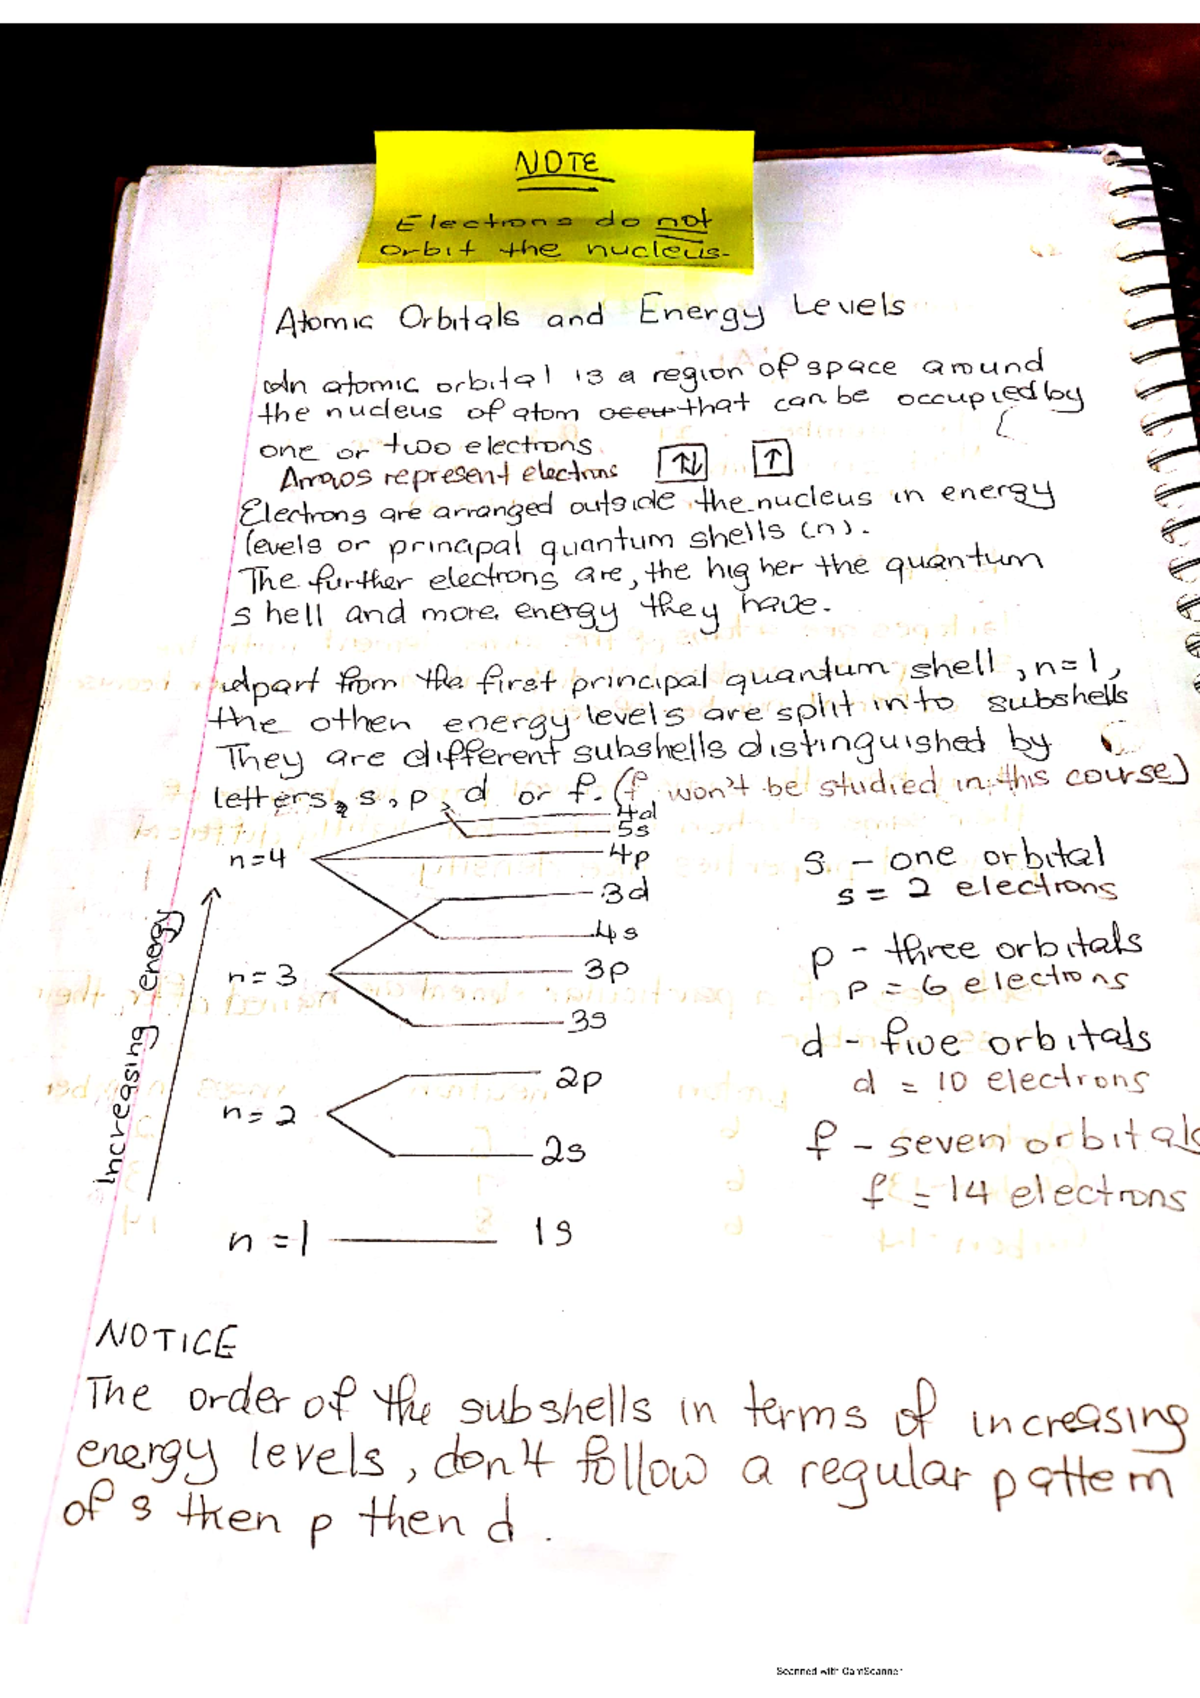 NOTE
Electrons do not
orbit the nucleus.
Atomic Orbitals and Energy Levels
An atomic orbital is a region of space around
the nucleus of atom that can be occupied by
one or two electrons.
Arrows represent electrons ↑↓ ↑
Electrons are arranged outside the nucleus in energy
levels or principal quantum shells (n).
The further electrons are, the higher the quantum
shell and more energy they have.
Apart from the first principal quantum shell, n=1,
the other energy levels are split into subshells
They are different subshells distinguished by
letters, s, p, d or f. (f won't be studied in this course)
4d
5s
n=4
4p
3d
4s
n=3
3p
3s
2p
n=2
2s
n=1
1s
Increasing energy
s - one orbital
s = 2 electrons
p - three orbitals
p = 6 electrons
d - five orbitals
d = 10 electrons
f - seven orbitals
f = 14 electrons
NOTICE
The order of the subshells in terms of increasing
energy levels, don't follow a regular pattern
of s then p then d.
Scanned with CamScanner